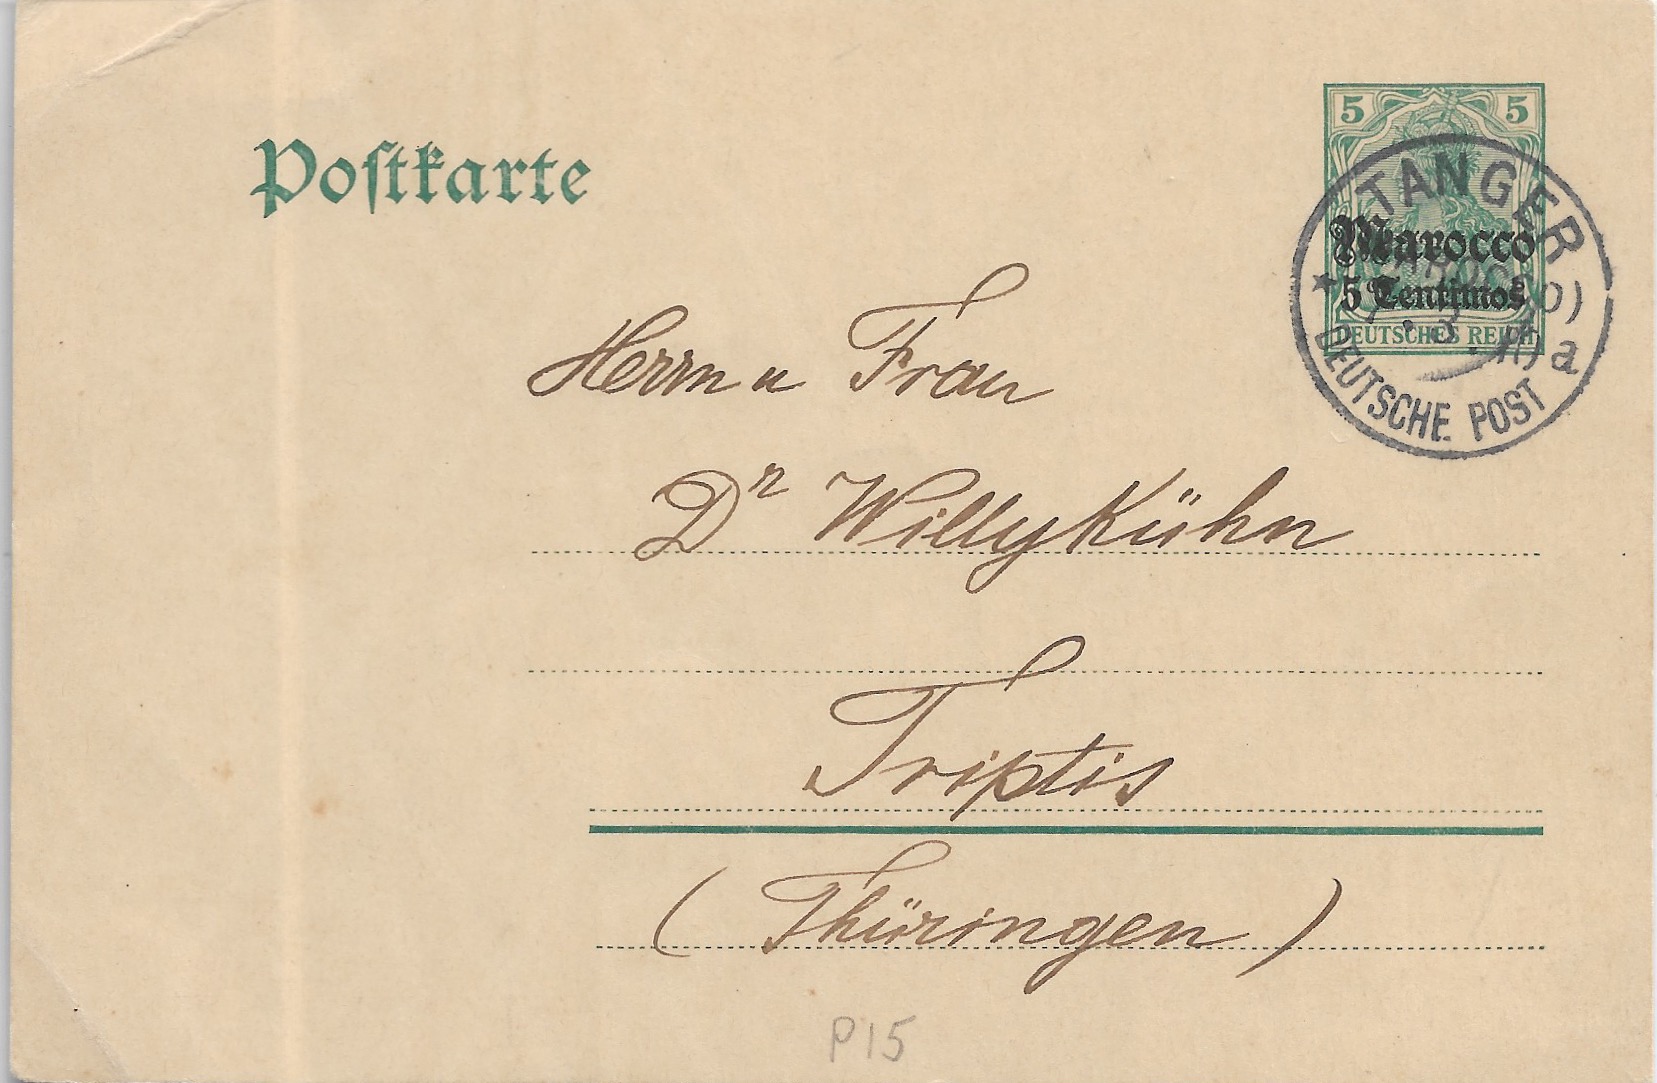 Postkarte
5 5
Marocco
5 Centimos
DEUTSCHES REICH
TANGER
DEUTSCHE POST
a
Herrn u Frau
Dr Willy Kühn
Triptis
(Thüringen)
P15